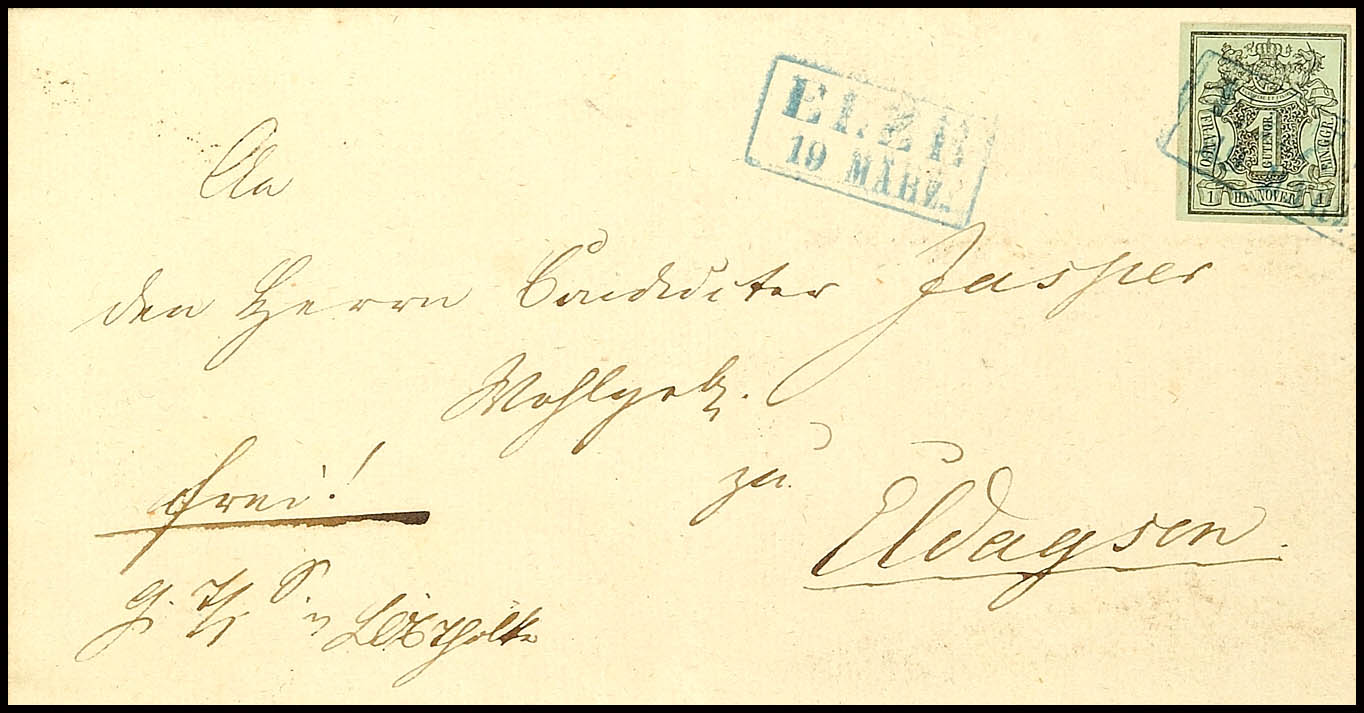 ELZE
19 MÄRZ.
FRANCO
1
GUTENGR.
EIN GGR.
1 HANNOVER 1
An
den Herrn Conducteur Jasper
Wohlgeb.
zu
Eldagsen.
frei!